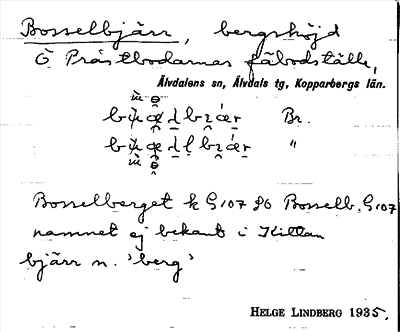 Bosselbjärr, bergshöjd
Ö Prästbodarnas fäbodställe,
Älvdalens sn, Älvdals tg, Kopparbergs län.
Br.
"
Bosselberget k G107 Bosselb. G107
namnet ej bekant i Kittan
bjärr n. 'berg'
HELGE LINDBERG 1935.